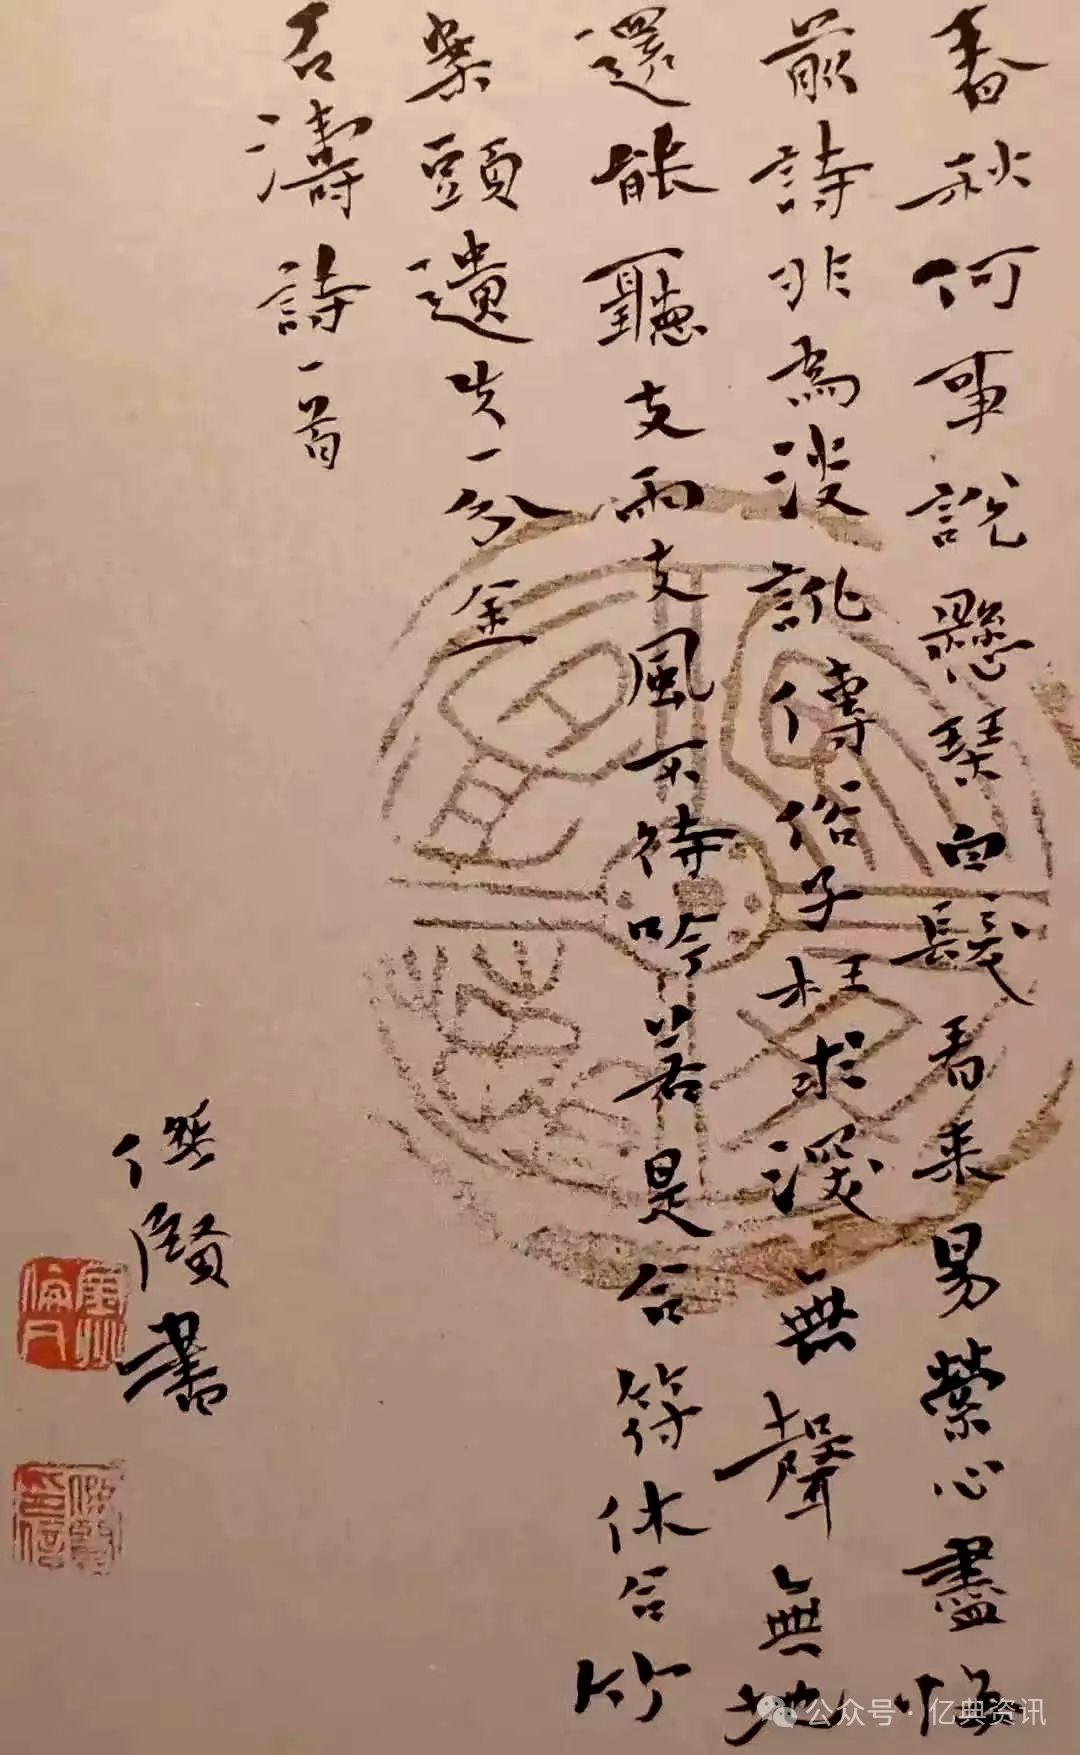 春秋何事說懸琴白髮看來易縈心盡悔
前詩非為沒訛傳俗子枉求深無聲無地
還能聽支雨支風不待吟若是合符休合竹
案頭遺失一分金
石濤詩一首
賢書
公众号·亿典资讯